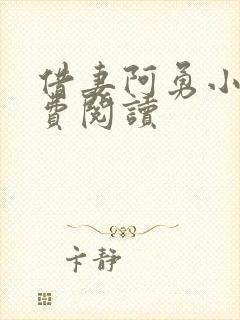 借妻阿勇小
費閱讀
卞靜